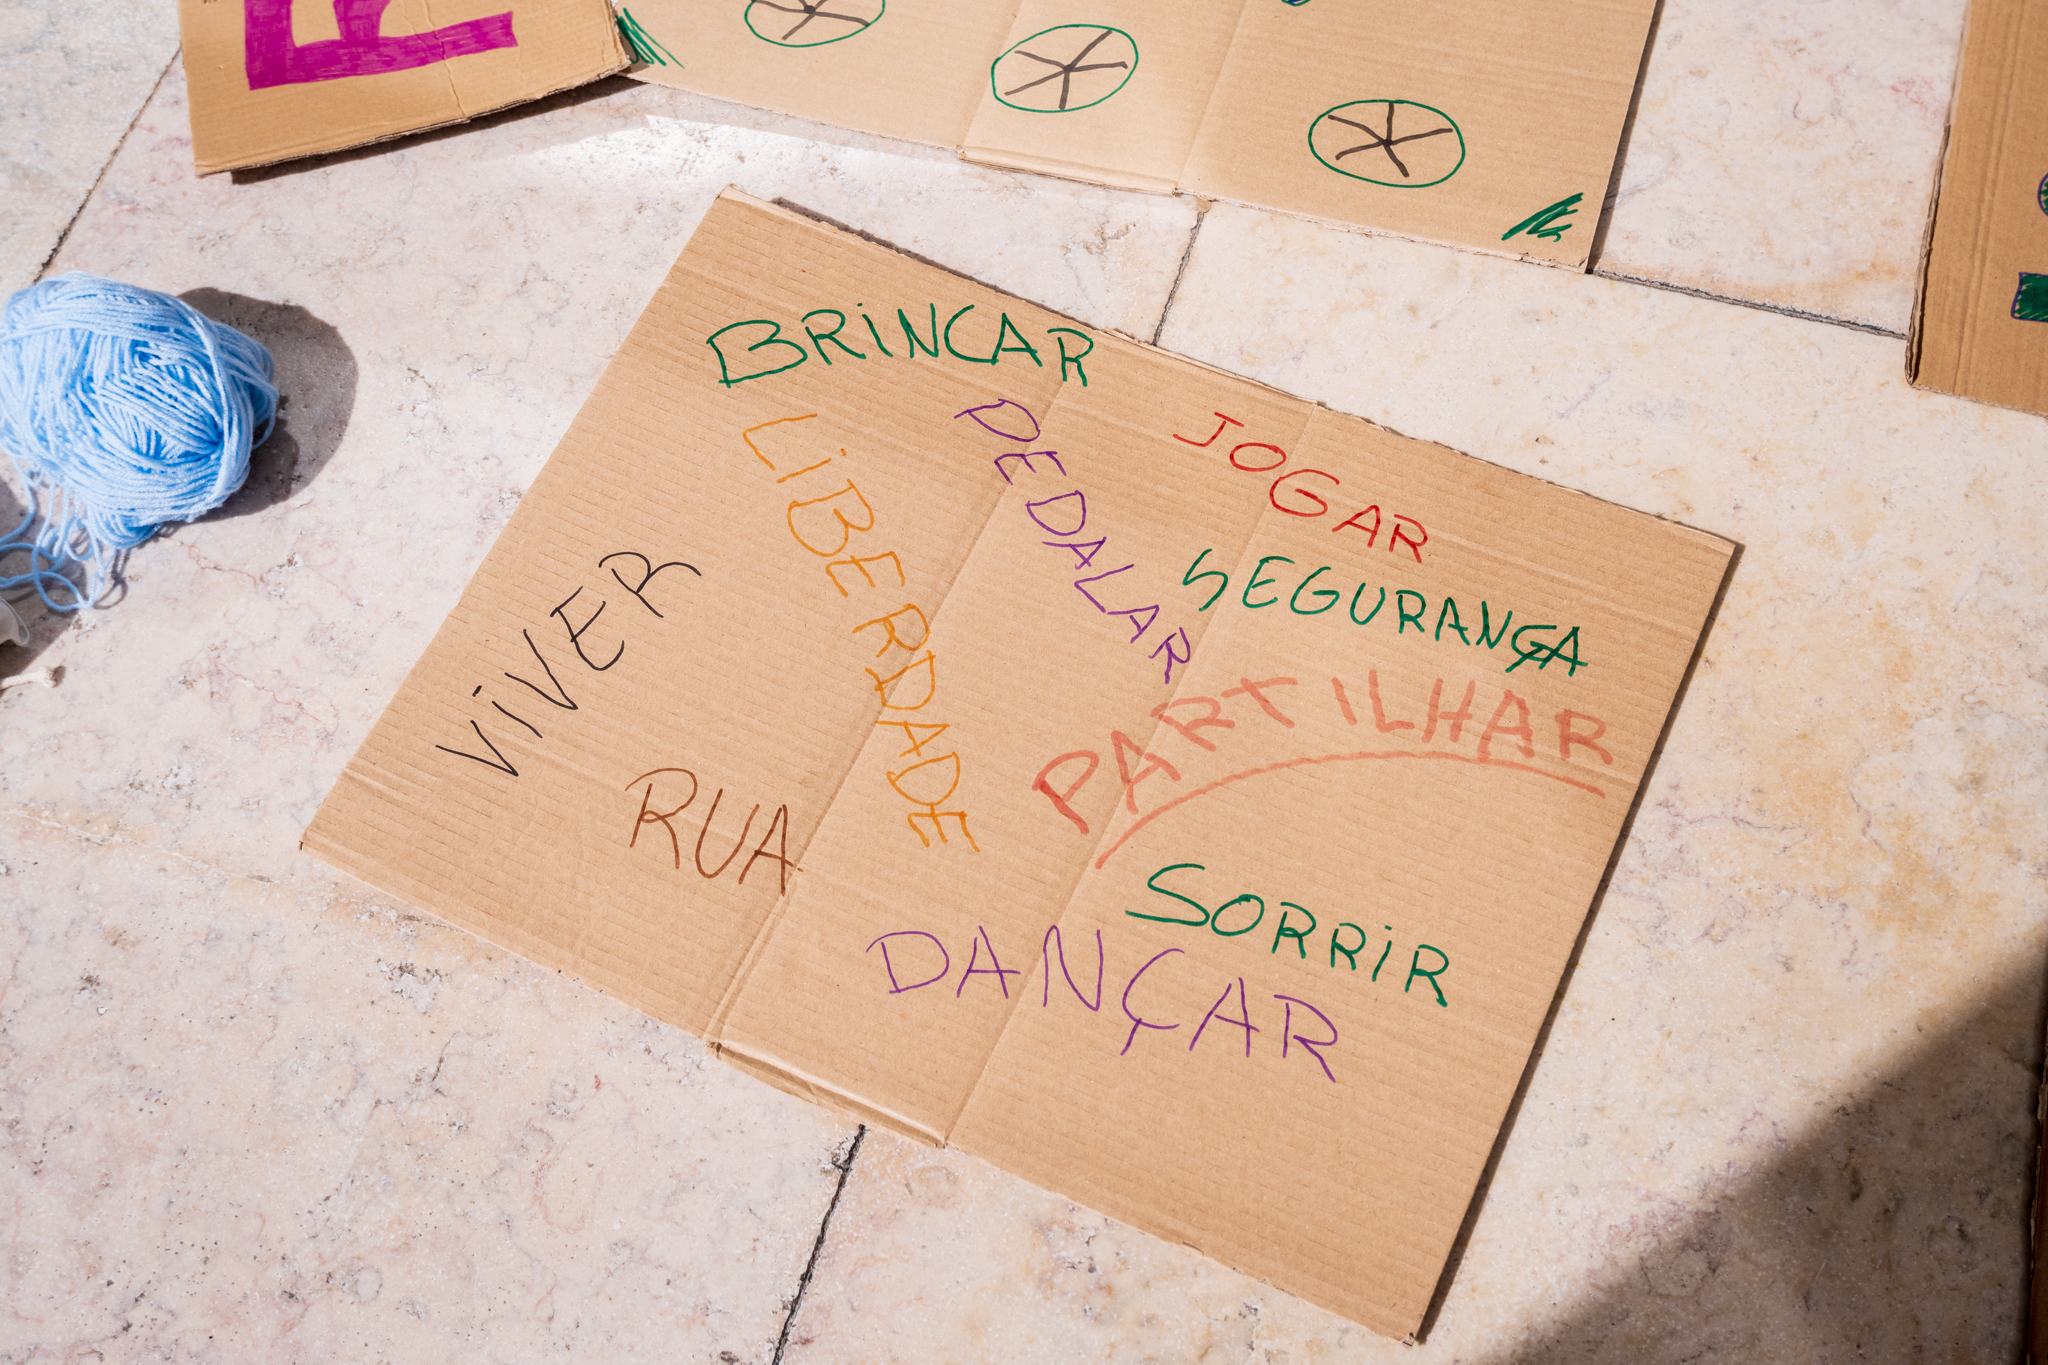 BRINCAR
LIBERDADE
PEDALAR
JOGAR
SEGURANÇA
VIVER
PARTILHAR
RUA
SORRIR
DANÇAR